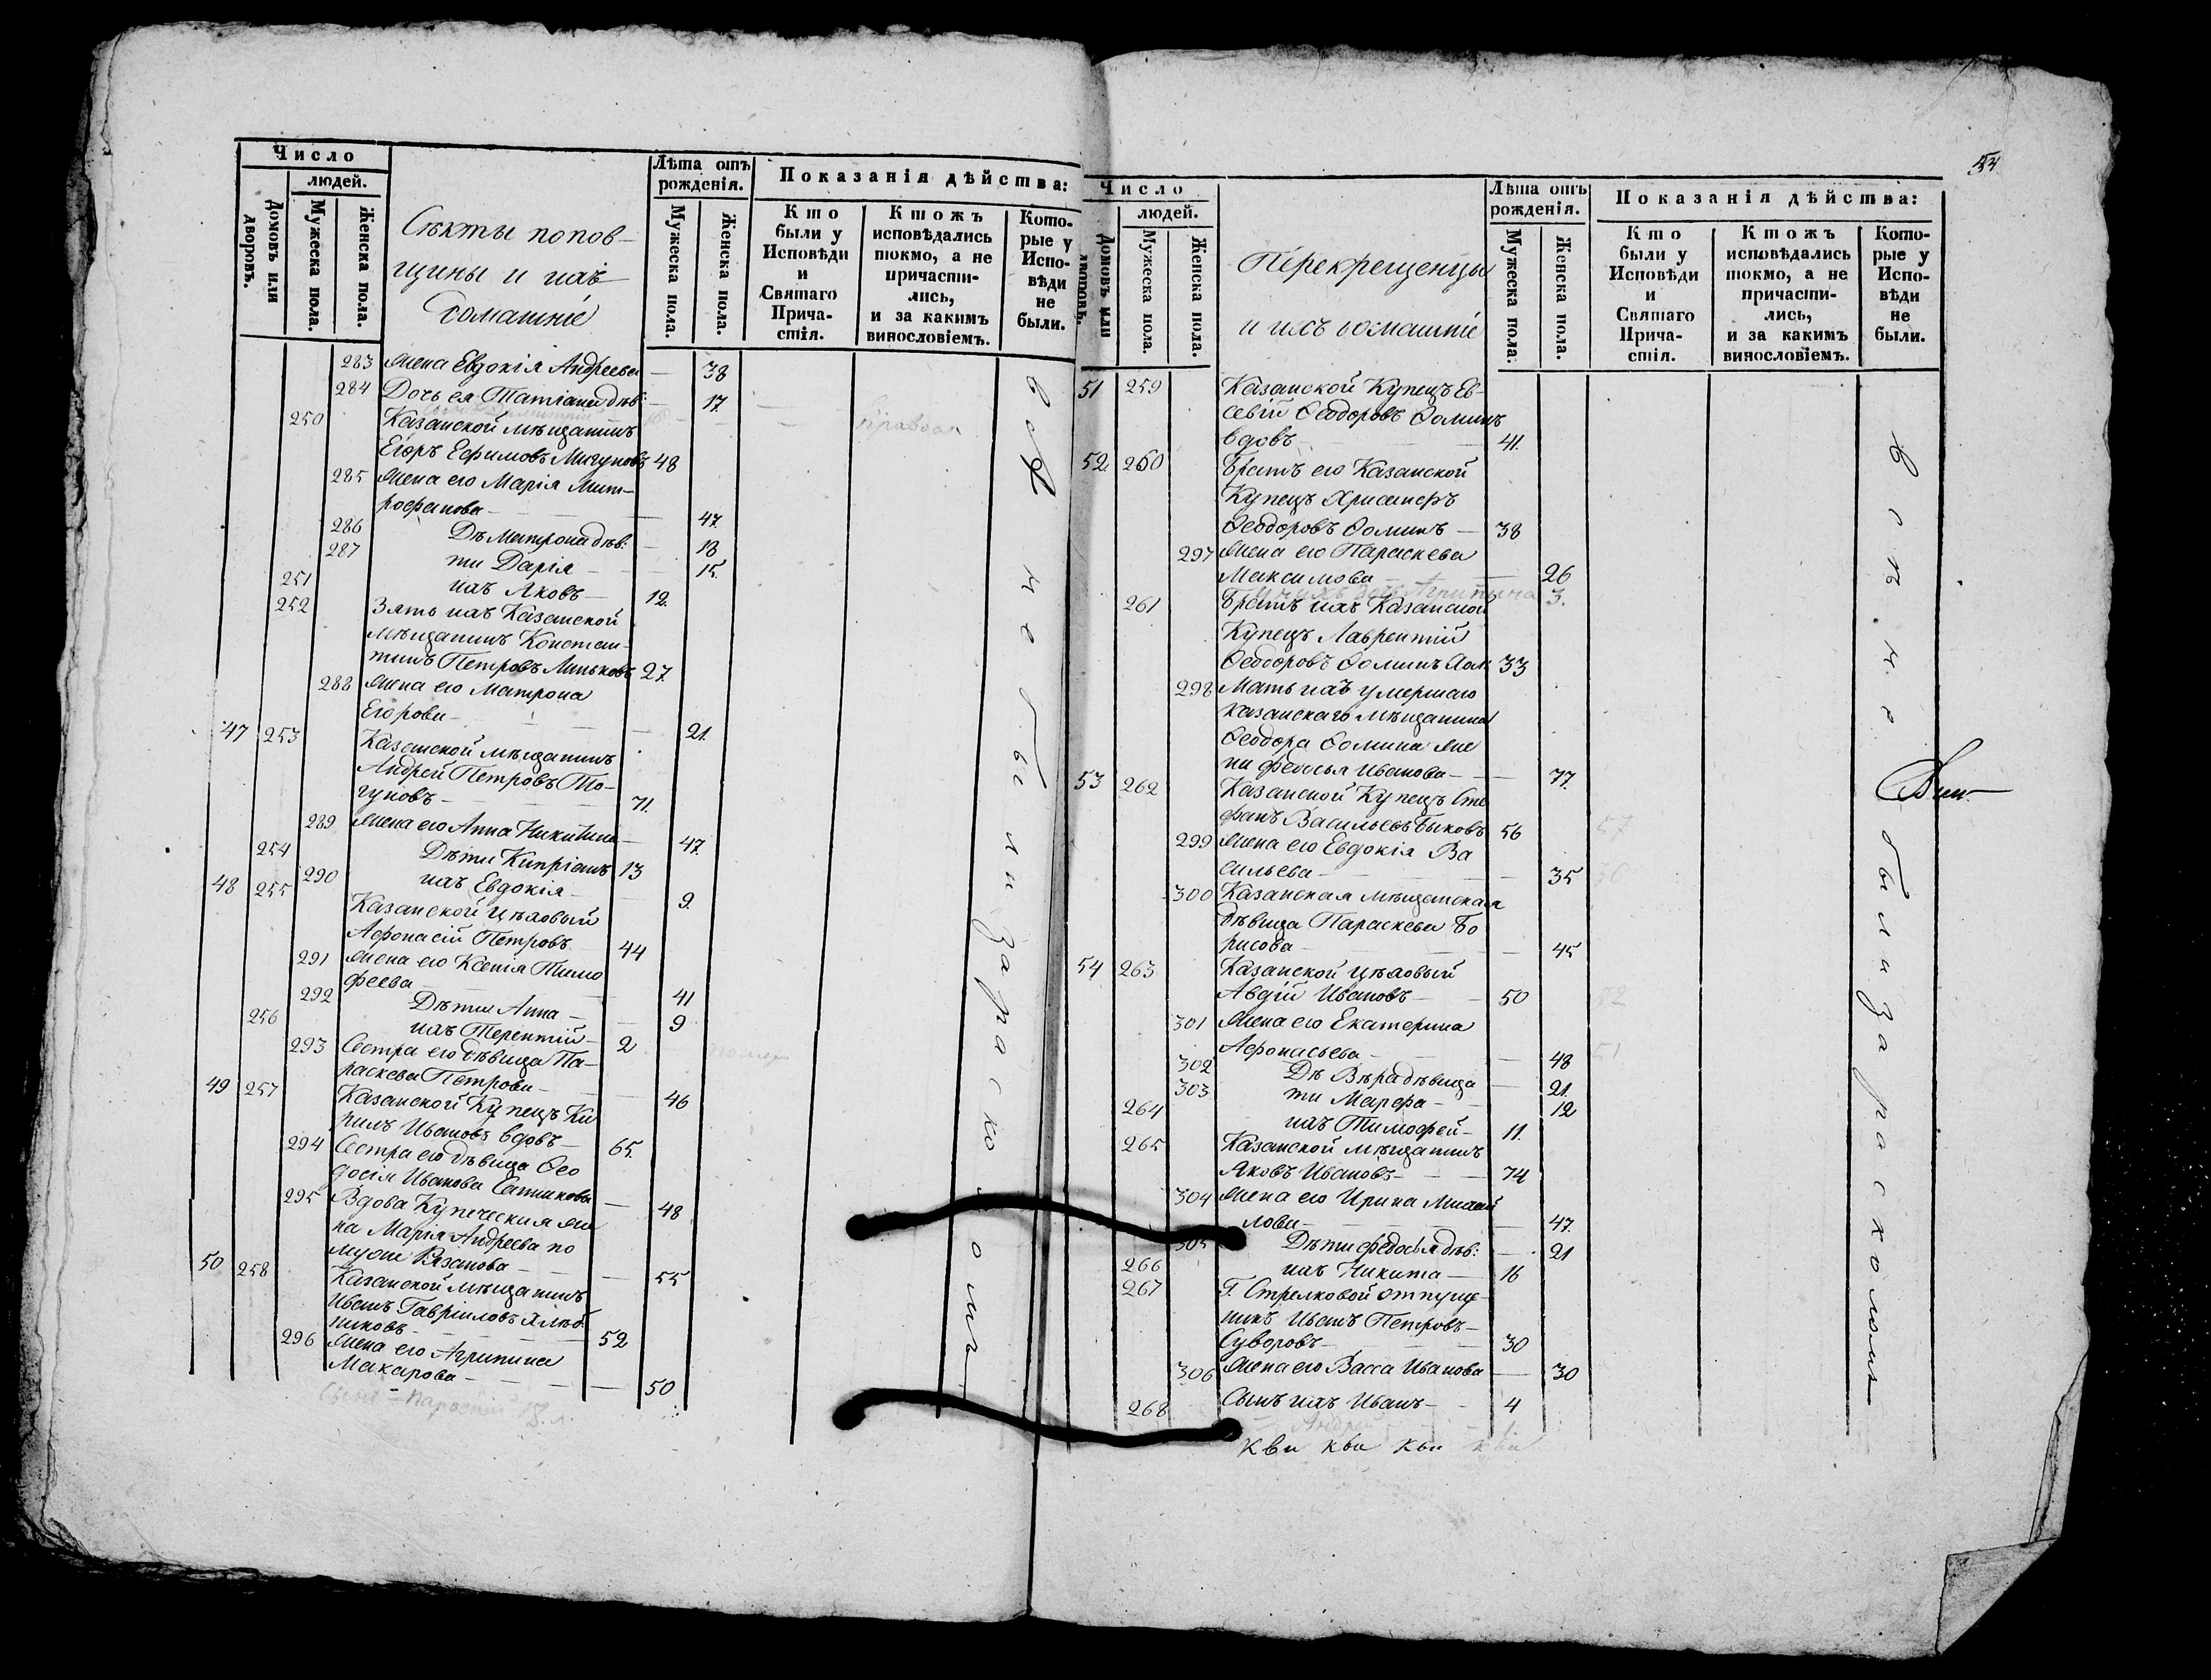 Число
людей.
Домовъ или дворовъ.
Мужеска пола.
Женска пола.
Секты попов-
щины и ихъ
домашніе
Лѣта отъ рожденія.
Мужеска пола.
Женска пола.
Показанія дѣйства:
Кто были у Исповѣди и Святаго Прича- стія.
Ктожъ исповѣдались токмо, а не причасти- лись, и за какимъ винословіемъ.
Кото- рые у Испо- вѣди не были.
283 Жена Евдокія Андреева — 38
284 Дочь ея Татіана дѣв: — 17.
250 Казанской мѣщанинъ
Егоръ Ефимовъ Мигуновъ 48
285 Жена его Марія Мит-
рофанова — 47.
286 Дѣ Матрона дѣв: — 18
287 ти Дарія — 15.
251 ихъ Яковъ — 12.
252 Зять ихъ Казанской
мѣщанинъ Констан-
тинъ Петровъ 27.
288 Жена его Матрона
Егорова — 21.
47 253 Казанской мѣщанинъ
Андрей Петровъ То-
гуновъ — 71.
289 Жена его Анна Никитина — 47.
254 Дѣти Кипріанъ 13
290 ихъ Евдокія — 9.
48 255 Казанской цѣховый
Афонасій Петровъ 44
291 Жена его Ксенія Тимо
феева — 41
292 Дѣти Анна — 9
256 ихъ Терентій — 2
293 Сестра его дѣвица Па-
раскева Петрова — 46
49 257 Казанской Купецъ Ки
рилъ Ивановъ вдовъ — 65.
294 Сестра его дѣвица Ѳео
досія Иванова — 48
295 Вдова Купеческая же
на Марія Андреева по
мужѣ Рязанова — 55
50 258 Казанской мѣщанинъ
Иванъ Гавріиловъ Хлѣб
никовъ — 52
296 Жена его Агрипина
Макарова — 50
всѣ не были за расколомъ
54
Число
людей.
Домовъ или дворовъ.
Мужеска пола.
Женска пола.
Перекрещенцы
и ихъ домашніе
Лѣта отъ рожденія.
Мужеска пола.
Женска пола.
Показанія дѣйства:
Кто были у Исповѣди и Святаго Прича- стія.
Ктожъ исповѣдались токмо, а не причасти- лись, и за какимъ винословіемъ.
Кото- рые у Испо- вѣди не были.
51 259 Казанской Купецъ Ев-
севій Ѳеодоровъ Ѳоминъ
вдовъ — 41.
52 260 Братъ его Казанской
Купецъ Хрисанфъ
Ѳеодоровъ Ѳоминъ — 38
297 Жена его Параскева
Максимова — 26
3.
261 Братъ ихъ Казанской
Купецъ Лаврентій
Ѳеодоровъ Ѳоминъ хол: 33
298 Мать ихъ умершаго
казанскаго мѣщанина
Ѳеодора Ѳомина же
на Федосья Иванова — 77.
53 262 Казанской Купецъ Сте
фанъ Васильевъ Быковъ 56
299 Жена его Евдокія Ва
сильева — 35
300 Казанская мѣщанская
дѣвица Параскева Бо
рисова — 45
54 263 Казанской цѣховый
Авдій Ивановъ — 50
301 Жена его Екатерина
Афонасьева — 48
302 Дѣ Вѣра дѣвица — 21.
303 ти Марфа — 12
264 ихъ Тимофей — 11.
265 Казанской мѣщанинъ
Яковъ Ивановъ — 74
304 Жена его Ирина Михай
лова — 47.
305 Дѣти Федосья дѣв: — 21
266 ихъ Никита — 16
267 Г. Стрелковой отпуще-
никъ Иванъ Петровъ
Суворовъ — 30
306 Жена его Васса Иванова — 30
268 Сынъ ихъ Иванъ — 4
Андрей
ква ква ква ква
всѣ не были за расколомъ